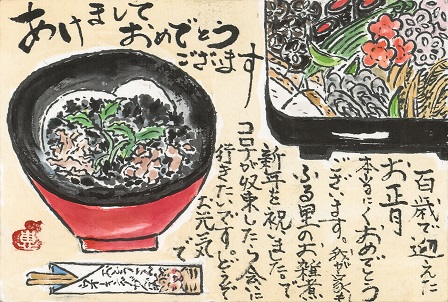 あけまして
おめでとう
ございます
百歳で迎えた
お正月
本当におめでとう
ございます。我が家も
ふる里のお雑煮で
新年を祝いました。
コロナが収束したら会いに
行きたいです。どうぞ
お元気で